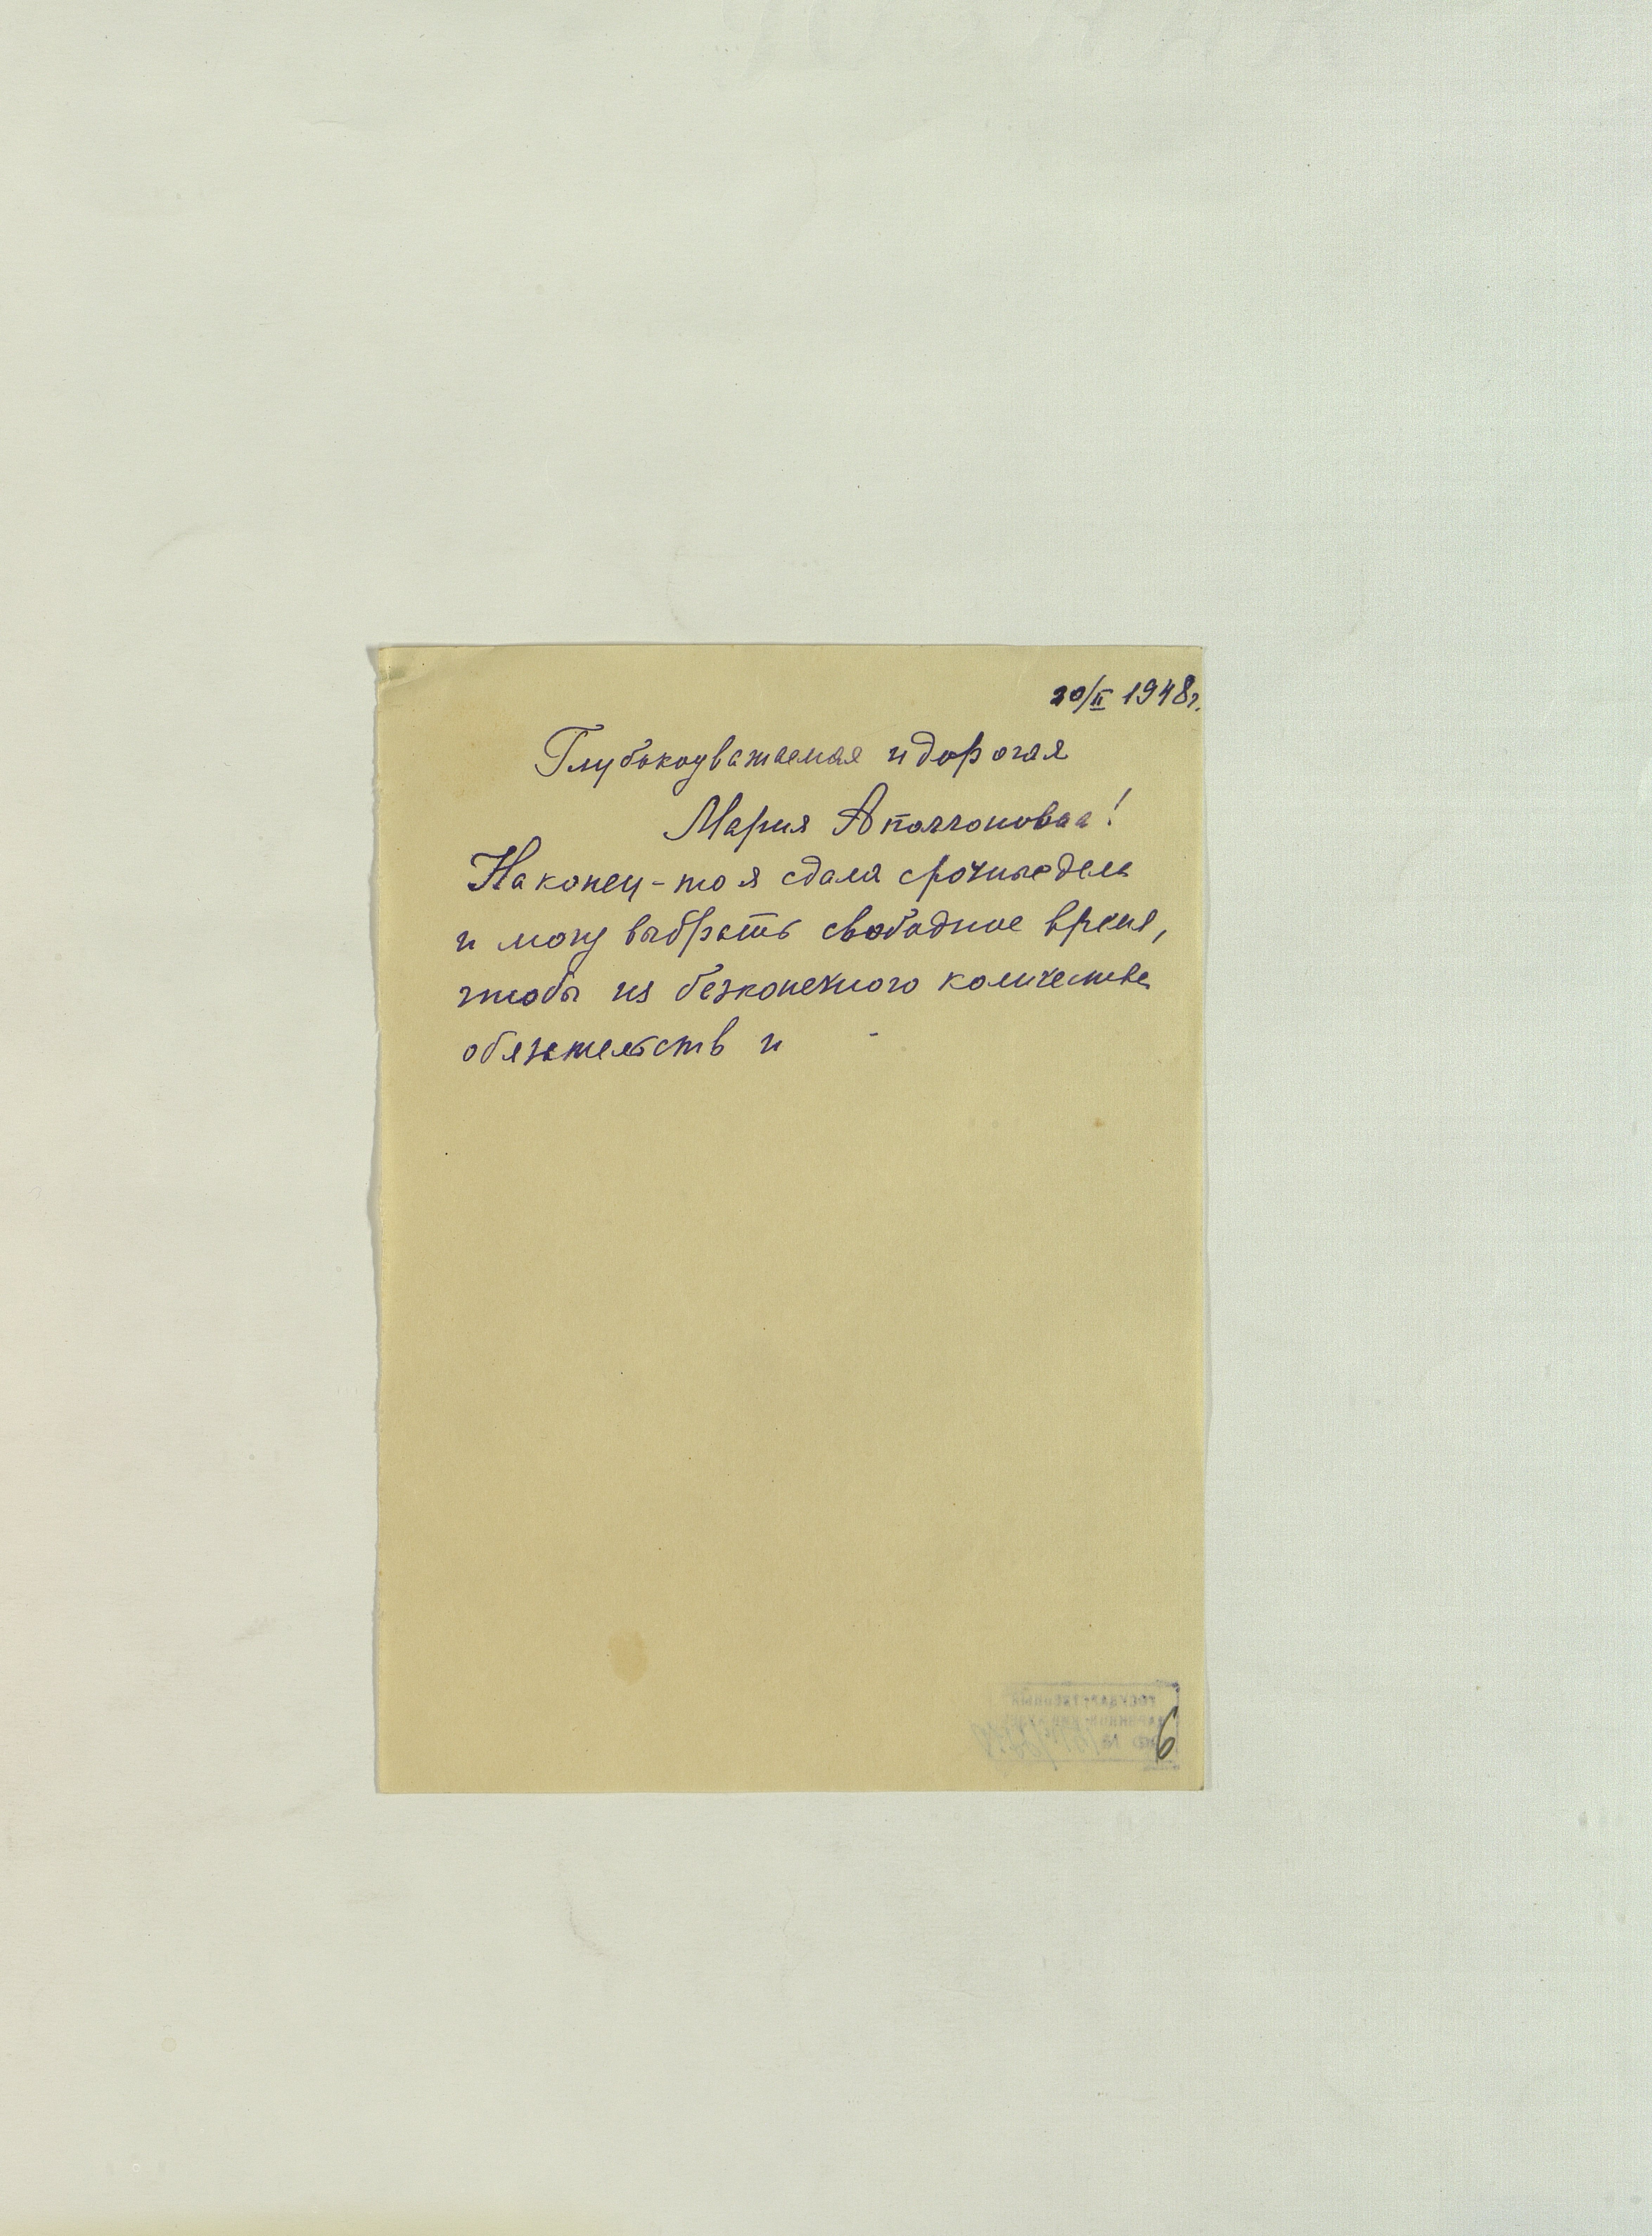 20/II 1948г.
Глубокоуважаемая и дорогая
Мария Аполлоновна!
Наконец-то я сдала срочные дела
и могу выбрать свободное время,
чтобы из безконечного количества
обязательств и -
ГОСУДАРСТВЕННЫЙ
№
6